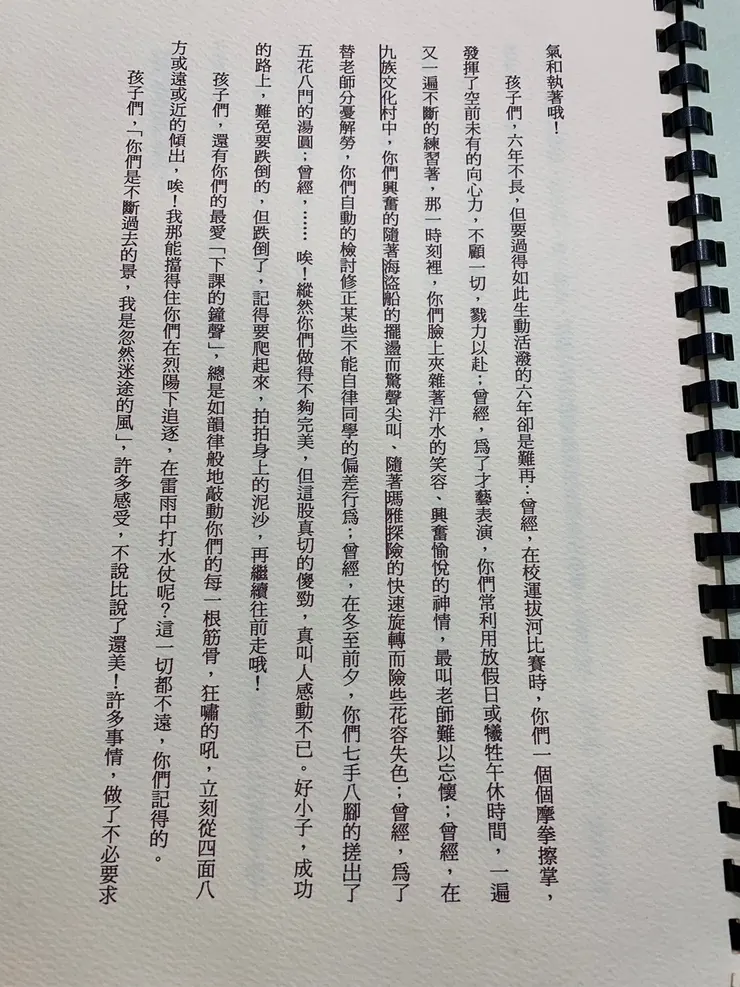 氣和執著哦！
孩子們，六年不長，但要過得如此生動活潑的六年卻是難再：曾經，在校運拔河比賽時，你們一個個摩拳擦掌，
發揮了空前未有的向心力，不顧一切，戮力以赴；曾經，為了才藝表演，你們常利用放假日或犧牲午休時間，一遍
又一遍不斷的練習著，那一時刻裡，你們臉上夾雜著汗水的笑容、興奮愉悅的神情，最叫老師難以忘懷；曾經，在
九族文化村中，你們興奮的隨著海盜船的擺盪而驚聲尖叫、隨著瑪雅探險的快速旋轉而險些花容失色；曾經，為了
替老師分憂解勞，你們自動的檢討修正某些不能自律同學的偏差行為；曾經，在冬至前夕，你們七手八腳的搓出了
五花八門的湯圓；曾經，⋯⋯ 唉！縱然你們做得不夠完美，但這股真切的傻勁，真叫人感動不已。好小子，成功
的路上，難免要跌倒的，但跌倒了，記得要爬起來，拍拍身上的泥沙，再繼續往前走哦！
孩子們，還有你們的最愛「下課的鐘聲」，總是如韻律般地敲動你們的每一根筋骨，狂嘯的吼，立刻從四面八
方或遠或近的傾出，唉！我那能擋得住你們在烈陽下追逐，在雷雨中打水仗呢？這一切都不遠，你們記得的。
孩子們，「你們是不斷過去的景，我是忽然迷途的風」，許多感受，不說比說了還美！許多事情，做了不必要求